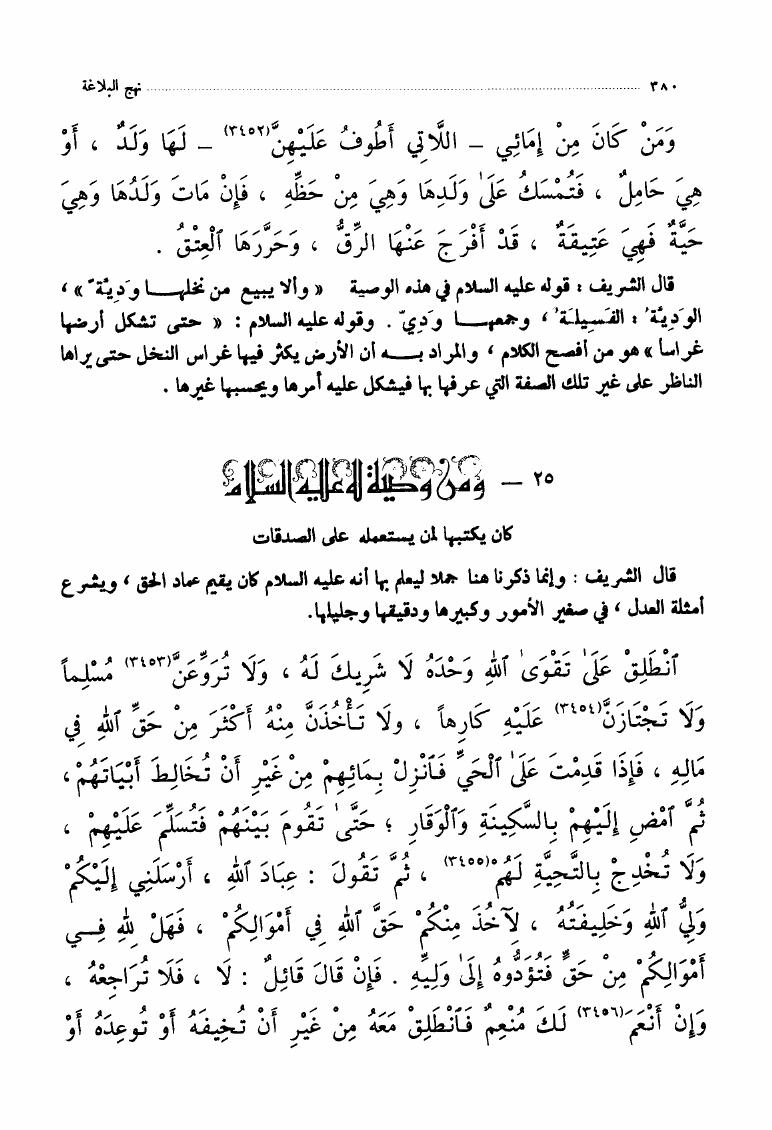 ٣٨٠ ........ نهج البلاغة
وَمَنْ كَانَ مِنْ إِمَائِي – اللَّاتِي أَطُوفُ عَلَيْهِنَّ(٣٤٥٢) – لَهَا وَلَدٌ ، أَوْ
هِيَ حَامِلٌ ، فَتُمْسَكُ عَلَىٰ وَلَدِهَا وَهِيَ مِنْ حَظِّهِ ، فَإِنْ مَاتَ وَلَدُهَا وَهِيَ
حَيَّةٌ فَهِيَ عَتِيقَةٌ ، قَدْ أَفْرَجَ عَنْهَا الرِّقُّ ، وَحَرَّرَهَا ٱلْعِتْقُ .
قال الشريف : قوله عليه السلام في هذه الوصية « وألا يبيع من نخلهـا وَدِيَّةً » ،
الوَدِيَّةُ : الفَسِيلَةُ ، وجمعهـا وَدِيّ . وقوله عليه السلام : « حتى تشكل أرضها
غراساً » هو من أفصح الكلام ، والمراد بـه أن الأرض يكثر فيها غراس النخل حتى يراها
الناظر على غير تلك الصفة التي عرفها بها فيشكل عليه أمرها ويحسبها غيرها .
٢٥ – وَمِنْ وَصِيَّةٍ لَهُ عَلَيْهِ السَّلَامُ
كان يكتبها لمن يستعمله على الصدقات
قال الشريف : وإنما ذكرنا هنا جملا ليعلم بها أنه عليه السلام كان يقيم عماد الحق ، ويشرع
أمثلة العدل ، في صغير الأمور وكبيرها ودقيقها وجليلها.
ٱنْطَلِقْ عَلَىٰ تَقْوَىٰ ٱللهِ وَحْدَهُ لَا شَرِيكَ لَهُ ، وَلَا تُرَوِّعَنَّ(٣٤٥٣) مُسْلِماً
وَلَا تَجْتَازَنَّ(٣٤٥٤) عَلَيْهِ كَارِهاً ، ولَا تَأْخُذَنَّ مِنْهُ أَكْثَرَ مِنْ حَقِّ ٱللهِ فِي
مَالِهِ ، فَإِذَا قَدِمْتَ عَلَىٰ ٱلْحَيِّ فَٱنْزِلْ بِمَائِهِمْ مِنْ غَيْرِ أَنْ تُخَالِطَ أَبْيَاتَهُمْ ،
ثُمَّ ٱمْضِ إِلَيْهِمْ بِالسَّكِينَةِ وَٱلْوَقَارِ ؛ حَتَّىٰ تَقُومَ بَيْنَهُمْ فَتُسَلِّمَ عَلَيْهِمْ ،
وَلَا تُخْدِجْ بِالتَّحِيَّةِ لَهُمْ(٣٤٥٥) ، ثُمَّ تَقُولَ : عِبَادَ ٱللهِ ، أَرْسَلَنِي إِلَيْكُمْ
وَلِيُّ ٱللهِ وَخَلِيفَتُهُ ، لِآخُذَ مِنْكُمْ حَقَّ ٱللهِ فِي أَمْوَالِكُمْ ، فَهَلْ لِلهِ فِـي
أَمْوَالِكُمْ مِنْ حَقٍّ فَتُؤَدُّوهُ إِلَىٰ وَلِيِّهِ . فَإِنْ قَالَ قَائِلٌ : لَا ، فَلَا تُرَاجِعْهُ ،
وَإِنْ أَنْعَمَ(٣٤٥٦) لَكَ مُنْعِمٌ فَٱنْطَلِقْ مَعَهُ مِنْ غَيْرِ أَنْ تُخِيفَهُ أَوْ تُوعِدَهُ أَوْ